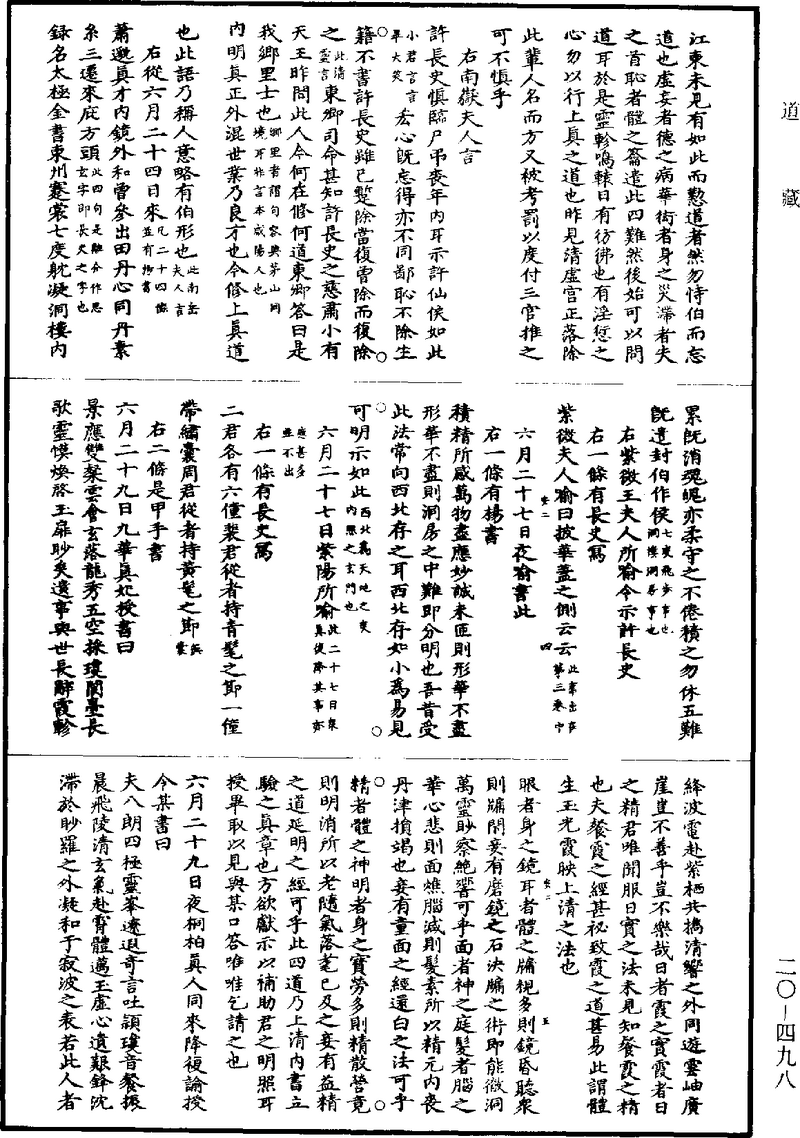 道藏
江東未見有如此而懃道者然勿恃伯而忘
道也虛妄者德之病華衒者身之災滯者失
之首恥者體之籥遣此四難然後始可以問
道耳於是靈軫鳴轅日有彷彿也有淫愆之
心勿以行上真之道也昨見清虛宮正落除
此輩人名而方又被考罰以度付三官推之
可不慎乎
右南嶽夫人言
許長史慎臨尸弔喪年內耳示許仙侯如此
小君言言畢大笑 玄心既忘得亦不同鄙恥不除生
籍不書許長史雖已蹔除當復曾除而復除
之 此清靈言 東卿司命甚知許長史之慈肅小有
天王昨問此人今何在修何道東卿答曰是
我鄉里士也 鄉里者謂句容與茅山同境耳非言本咸陽人也
內明真正外混世業乃良才也今修上真道
也此語乃稱人意略有伯形也 此南岳夫人言
右從六月二十四日來 凡二十四條並有楊書
蕭邈真才內鏡外和曾參出田丹心同丹素
糸三遷來庇方頭 此四句是離合作思玄字即長史之字也
録名太極金書東州蹇裳七度躭凝洞樓內
累既消魂魄亦柔守之不倦積之勿休五難
既遣封伯作侯 七度飛步事也洞樓洞房事也
右紫微王夫人所喻令示許長史
右一條有長史寫
紫微夫人喻曰披華蓋之側云云 此章出在第三卷中
六月二十七日夜喻書此
右一條有楊書
積精所感萬物盡應妙誠未匝則形華不盡
形華不盡則洞房之中難即分明也吾昔受
此法常向西北存之耳西北存如小為易見
可明示如此 西北為天地之戾內照之玄門也
六月二十七日紫陽所喻 此二十七日衆真從降其事亦應甚多並不出
右一條有長史寫
二君各有六僮裴君從者持青髦之節一僮
帶繡囊周君從者持黃髦之節 無囊
右二條是甲手書
六月二十九日九華真妃授書曰
景應雙粲雲會玄落龍秀五空採瓊閬臺長
歌靈幙煥啓玉扉眇矣遺事與世長辭霞軫
絳波電赴紫栖共擕清響之外同遊雲岫廣
崖豈不善乎豈不樂哉日者霞之寶霞者日
之精君唯聞服日實之法未見知餐霞之精
也夫餐霞之經甚秘致霞之道甚易此謂體
生玉光霞映上清之法也
眼者身之鏡耳者體之牖視多則鏡昏聽衆
則牖閉妾有磨鏡之石決牖之術即能徹洞
萬靈眇察絕響可乎面者神之庭髮者腦之
華心悲則面燋腦減則髮素所以精元內喪
丹津損竭也妾有童面之經還白之法可乎
精者體之神明者身之寶勞多則精散營竟
則明消所以老隨氣落耄已及之妾有益精
之道延明之經可乎此四道乃上清內書立
驗之真章也方欲獻示以補助君之明照耳
授畢取以見與某口答唯唯乞請之也
六月二十九日夜桐柏真人同來降復諭授
令某書曰
夫八朗四極靈峯遼遐奇言吐穎瓊音餐振
晨飛陵清玄氣赴霄體邁玉虛心遺艱鋒沈
滯於眇羅之外凝和于寂波之表若此人者
二〇—四九八